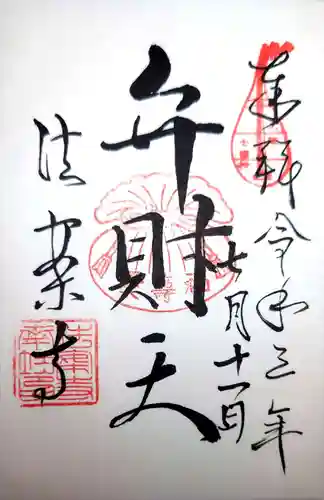 奉拝 令和三年
七月十一日
弁財天
法案寺